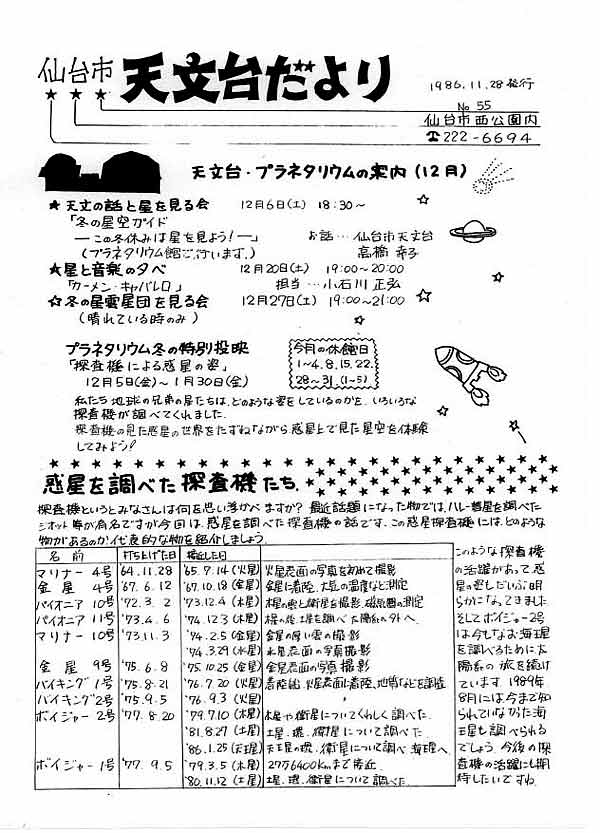 仙台市 天文台だより
1986.11.28発行
No 55
仙台市西公園内
☎222-6694
天文台・プラネタリウムの案内(12月)
★天文の話と星を見る会 12月6日(土) 18:30~
「冬の星空ガイド
―この冬休みは星を見よう!―」 お話…仙台市天文台
(プラネタリウム館で行います。) 高橋 幸子
★星と音楽の夕べ 12月20日(土) 19:00~20:00
「カーメン・キャバレロ」 担当…小石川 正弘
☆冬の星雲星団を見る会 12月27日(土) 19:00~21:00
(晴れている時のみ)
プラネタリウム冬の特別投映
「探査機による惑星の姿」
12月5日(金)~1月30日(金)
今月の休館日
1~4.8.15.22.
28~31.(1~5)
私たち地球の兄弟の星たちは、どのような姿をしているのかを、いろいろな
探査機が調べてくれました。
探査機の見た惑星の世界をたずねながら惑星上で見た星空を体験
してみよう!
惑星を調べた探査機たち.
探査機というとみなさんは何を思い浮かべますか? 最近話題になった物では、ハレー彗星を調べた
ジオット等が有名ですが今回は、惑星を調べた探査機の話です。この惑星探査機には、どのような
物があるのか!代表的な物を紹介しましょう.
名前 打ち上げた日 接近した日
マリナー 4号 '64.11.28 '65.7.14(火星) 火星表面の写真を初めて撮影
金星 4号 '67.6.12 '67.10.18(金星) 金星に着陸.大気の温度など測定
パイオニア 10号 '72.3.2 '73.12.4(木星) 木星の雲と衛星を撮影、磁気圏の測定
パイオニア 11号 '73.4.6 '74.12.3(木星) 木星の後.土星を調べ太陽系の外へ.
マリナー 10号 '73.11.3 '74.2.5(金星) 金星の厚い雲の撮影
'74.3.29(水星) 水星表面の写真撮影
金星 9号 '75.6.8 '75.10.25(金星) 金星表面の写真撮影
バイキング 1号 '75.8.21 '76.7.20(火星) 着陸船.火星表面に着陸、地震などを調査
バイキング 2号 '75.9.5 '76.9.3(火星) 〃
ボイジャー 2号 '77.8.20 '79.7.10(木星) 木星や衛星についてくわしく調べた.
'81.8.27(土星) 土星.環.衛星について調べた.
'86.1.25(天王星) 天王星の環.衛星について調べ海王星へ.
ボイジャー 1号 '77.9.5 '79.3.5(木星) 2776400Kmまで接近.
'80.11.12(土星) 土星.環.衛星について調べた.
このような探査機
の活躍があって、惑
星の姿しだいに明
らかになってきました
そしてボイジャー2号
は今でもなお海王星
を調べるために太
陽系の旅を続け
ています。1989年
8月には今まで知
られていなかった海
王星も調べられる
でしょう。今後の探
査機の活躍にも期
待したいですね